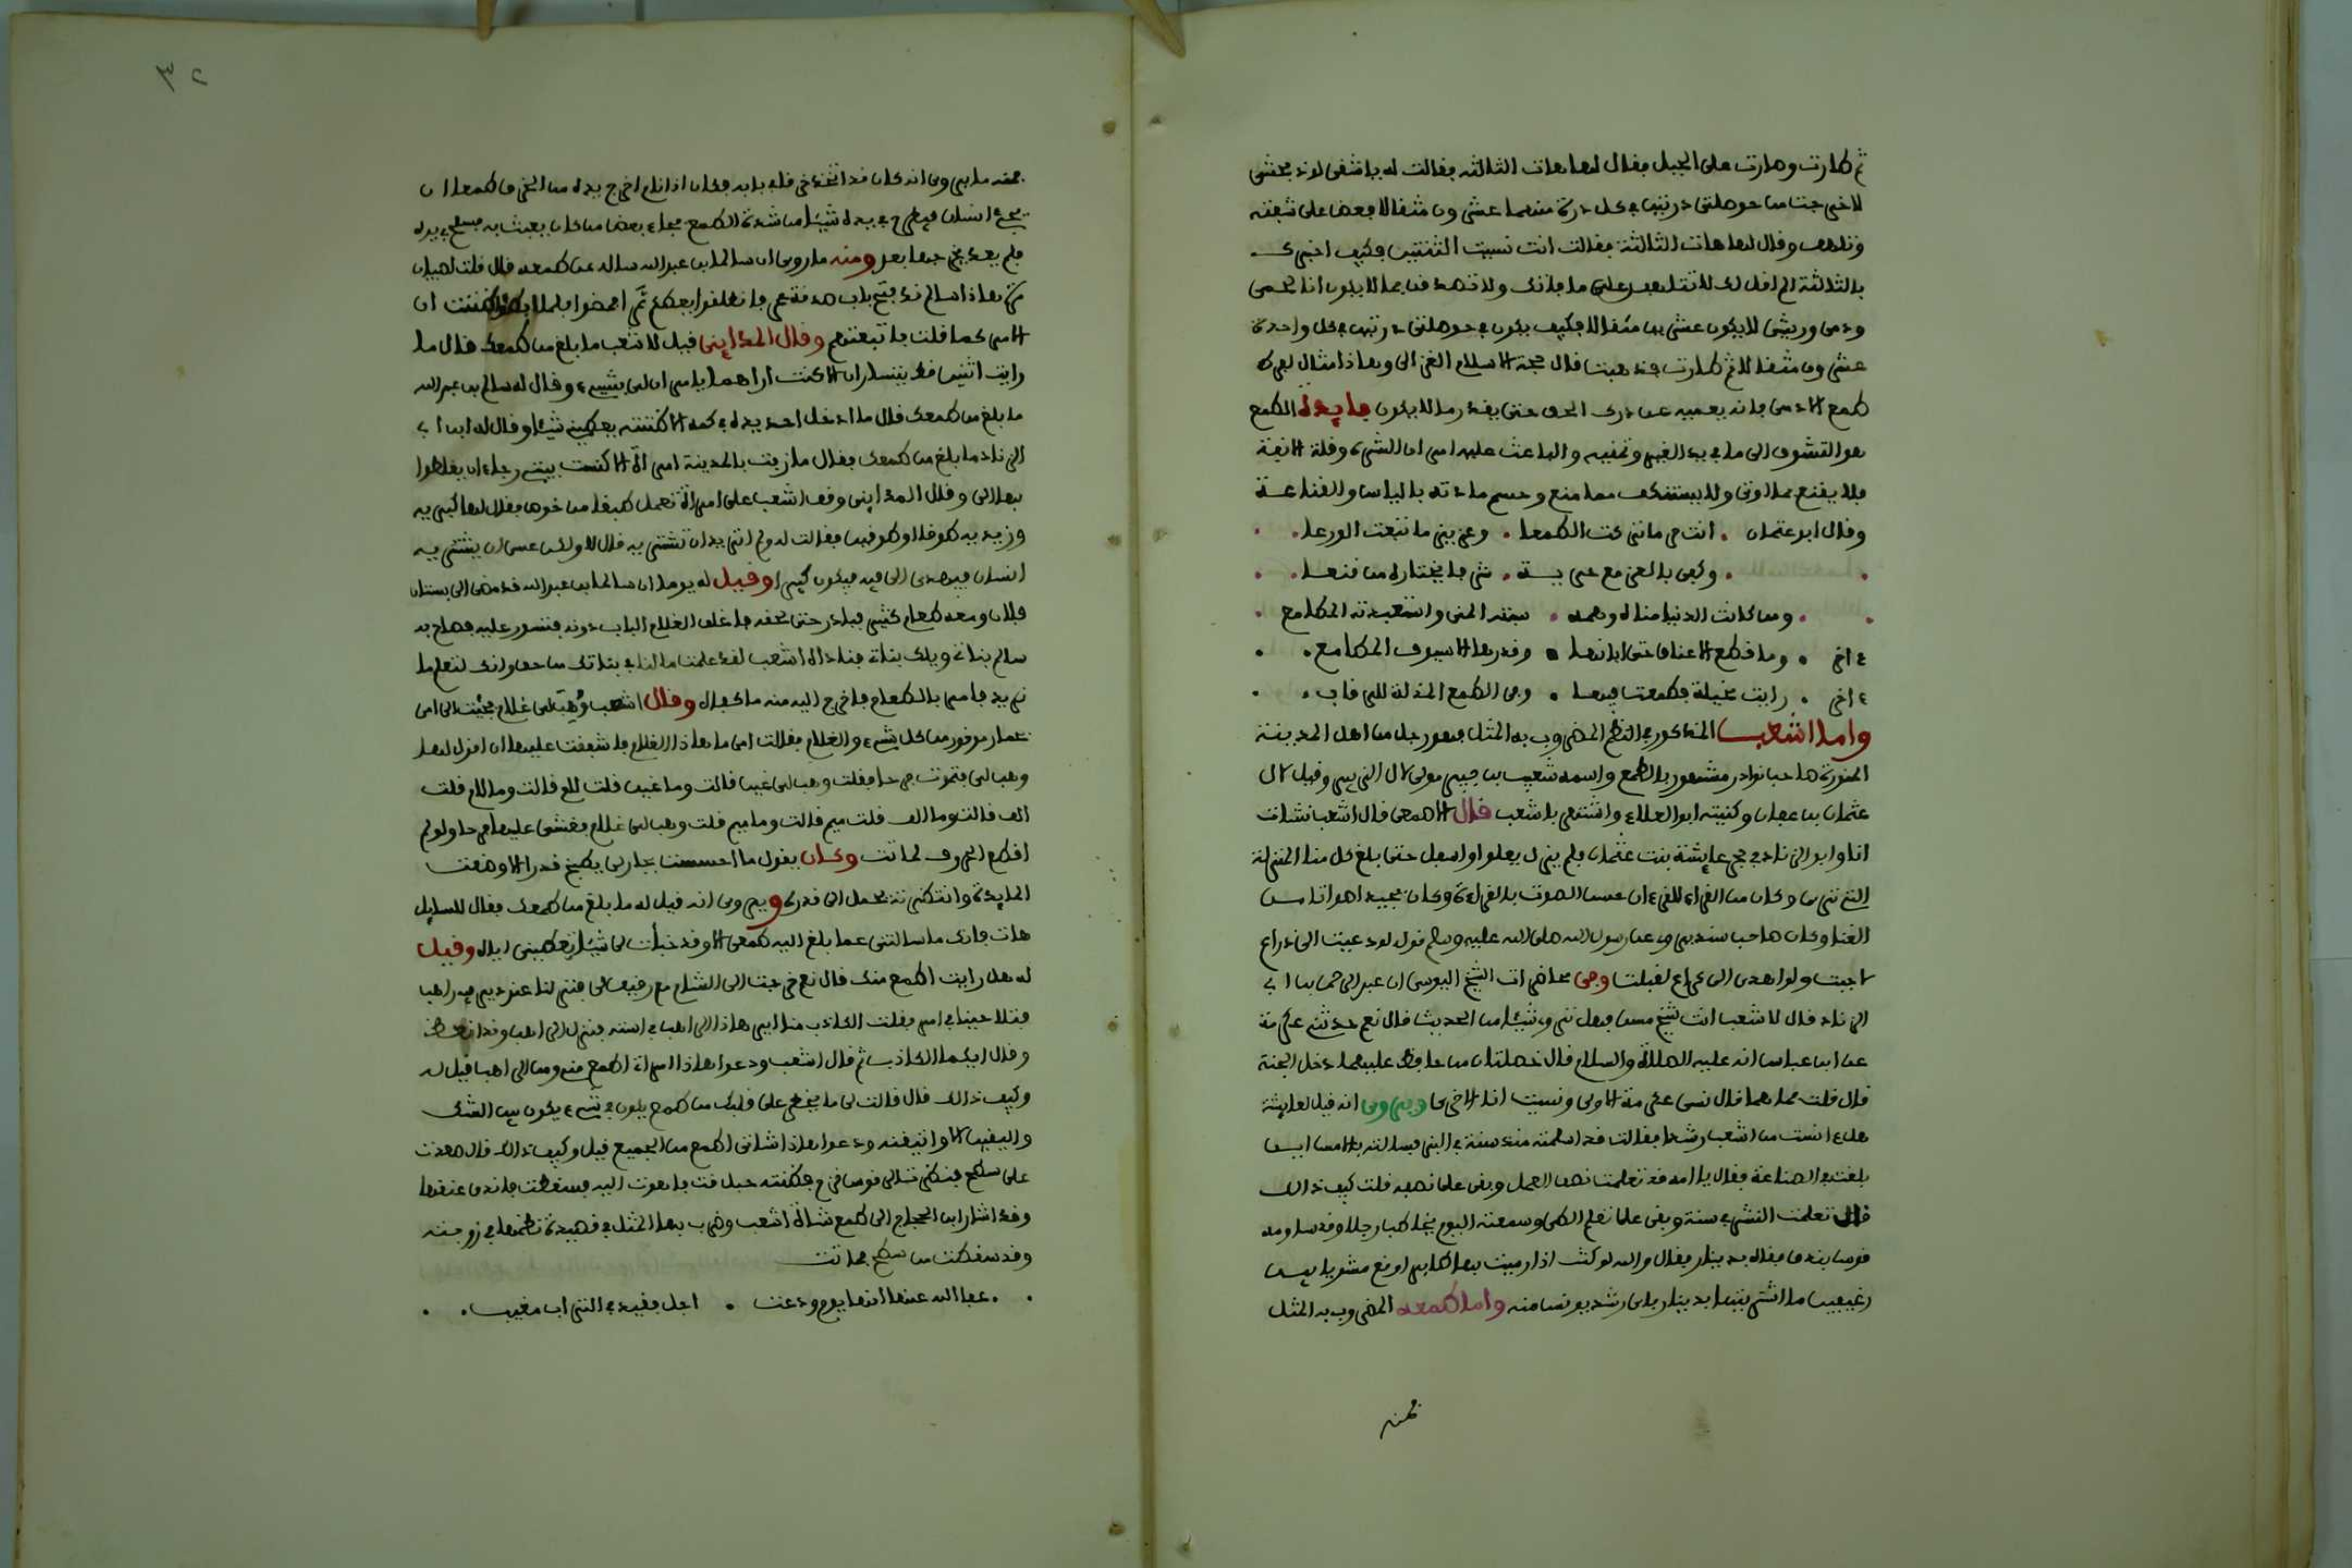 ثم طارت وصارت على الجبل فقال لها هات الثالثة فقالت له يا شقي لو ذبحتني
لاخرجت من حوصلتي درتين في كل درة منهما عشرون مثقالا فعض على شفته
وتلهف وقال لها هات الثالثة فقالت انت نسيت الثنتين فكيف اخبرك
بالثالثة الم اقل لك لا تتلهف على ما فاتك ولا تصدق بما لا يكون انا لحمي
ودمي وريشي لا يكون عشرين مثقالا فكيف يكون في حوصلتي درتين في كل واحدة
عشرون مثقالا ثم طارت فذهبت قال حجة الاسلام الغزالي وهاذا مثال لفرط
طمع الادمي فانه يعميه عن درك الحق حتى يقدر ما لا يكون فايدة الطمع
هو التشوف الى ما في يد الغير وتمنيه والباعث عليه امران الشره وقلة الانفة
فلا يقنع بما اوتي ولا يستنكف مما منع وحسم مادته بالياس والقناعة
وقال ابو عثمان . انت حر ما تركت الطمعا . وعزيز ما تبعت الورعا .
. وكفى بالعز مع حرية . شرفا يختاره من قنعا .
. ومن كانت الدنيا مناه وهمه . سبته المنى واستعبدته المطامع .
ءاخر . وما قطع الاعناق حتى ابانها . وقدرها الا سيوف المطامع .
ءاخر . رايت مخيلة فطمعت فيها . وفي الطمع المذلة للرقاب .
واما اشعب المذكور في النظم المضروب به المثل فهو رجل من اهل المدينة
المنورة صاحب نوادر مشهور بالطمع واسمه شعيب بن جبير مولى ال الزبير وقيل ال
عثمان بن عفان وكنيته ابو العلاء واشتهر باشعب قال الاصمعي قال اشعب نشات
انا وابو الزناد في حجر عايشة بنت عثمان فلم يزل يعلو واسفل حتى بلغ كل منا المنزلة
التي ترى وكان من القراء للقرءان حسن الصوت بالقراءة وكان يجيد اصواتا من
الغنا وكان صاحب سند يروي عن رسول الله صلى الله عليه وسلم قوله لو دعيت الى ذراع
لاجبت ولو اهدي الي كراع لقبلت وفي محاضرات الشيخ اليوسي ان عبد الرحمن بن ابي
الزناد قال لاشعب انت شيخ مسن فهل تروي شيئا من الحديث قال نعم حدثني عكرمة
عن ابن عباس انه عليه الصلاة والسلام قال خصلتان من حافظ عليهما دخل الجنة
قال قلت فما هما قال نسي عكرمة الاولى ونسيت انا الاخرى ويروى انه قيل لعايشة
هل ءانست من اشعب رشدا فقالت قد اسلمته منذ سنة في البز فسالته بالامس اين
بلغت في الصناعة فقال يا امه قد تعلمت نصف العمل وبقي علي نصفه قلت كيف ذالك
قال تعلمت النشر في سنة وبقي علي تعلم الطي وسمعته اليوم يخاطب رجلا وقد ساومه
قوس بندق فقال بدينار فقال والله لو كنت اذا رميت بها طايرا وقع مشويا بين
رغيفين ما اشتريتها بدينار فاي رشد يونس منه واما طمعه المضروب به المثل
فمنه
٣٢
فمنه ما يروى انه كان قد اتخذ خرقا في بابه وكان اذا نام اخرج يده من الخرق طمعا ان
يجيء انسان فيطرح في يده شيئا من شدة الطمع فجاء بعض من كان يعبث به فسلح في يده
فلم يعد يخرجها بعد ومنه ما روي ان سالما بن عبد الله ساله عن طمعه قال قلت لصبيان
مرة هاذا سالم قد فتح باب صدقة عمر فانطلقوا يعطكم ثم امضوا فلما ابطئوا ظننت ان
الامر كما قلت فاتبعتهم وقال المدايني قيل لاشعب ما بلغ من طمعك قال ما
رايت اثنين قط يتساران الا كنت اراهما يامران لي بشيء وقال له سالم بن عبد الله
ما بلغ من طمعك قال ما ادخل احد يده في كمه الا ظننته يعطيني شيئا وقال له ابن ابي
الزناد ما بلغ من طمعك فقال ما زفت بالمدينة امراة الا كنست بيتي رجاء ان يغلطوا
بها الي وقال المدايني وقف اشعب على امراة تعمل طبقا من خوص فقال لها كبريه
وزيد فيه طوقا او طوقين فقالت له ولم اتريد ان تشتريه قال لا ولكن عسى ان يشتريه
انسان فيهدي الي فيه فيكون كبيرا وقيل له يوما ان سالما بن عبد الله قد مضى الى بستان
فلان ومعه طعام كثير فبادر حتى لحقه فاغلق الغلام الباب دونه فتسور عليه فصاح به
سالم بناتي ويلك بناتي فناداه اشعب لقد علمت ما لنا في بناتك من حق وانك لتعلم ما
نريد فامر بالطعام فاخرج اليه منه ما كفاه وقال اشعب وُهِبَ لي غلام فجئت الى امي
بحمار موقور من كل شيء والغلام فقالت امي ما هاذا الغلام فاشفقت عليها ان اقول لها
وهب لي فتموت فرحا فقلت وهب لي غين قالت وما غين قلت لام قالت وما لام قلت
الف قالت وما الف قلت ميم قالت وما ميم قلت وهب لي غلام فغشي عليها فرحا ولو لم
اقطع الحروف لماتت وكان يقول ما احسست بجار لي يطبخ قدرا الا وضعت
المايدة وانتظرته يحمل الي قدره ويروى انه قيل له ما بلغ من طمعك فقال للسايل
هات فانك ما سالتني عما بلغ اليه طمعي الا وقد خبات لي شيئا تعطيني اياه وقيل
له هل رايت اطمع منك قال نعم خرجت الى الشام مع رفيق لي فنزلنا عند دير فيه راهب
فتلاحينا في امر فقلت الكاذب منا اير هاذا الراهب في استه فنزل الراهب وقد انعظ
وقال ايكما الكاذب ثم قال اشعب ودعوا هاذا امراتي اطمع مني ومن الراهب قيل له
وكيف ذالك قال قالت لي ما يخطر على قلبك من طمع يكون في شيء يكون بين الشك
واليقين الا واتيقنه ودعوا هاذا شاتي اطمع من الجميع قيل وكيف ذالك قال صعدت
على سطح فنظرت الى قوس قزح فظنته حبل قت فاهوت اليه فسقطت فاندق عنقها
وقد اشار ابن الحجاج الى طمع شاة اشعب وضرب بها المثل في قصيدة نظمها في زوجته
وقد سقطت من سطح فماتت
. عفا الله عنها انها يوم ودعت . اجل فقيد في التراب مغيب .